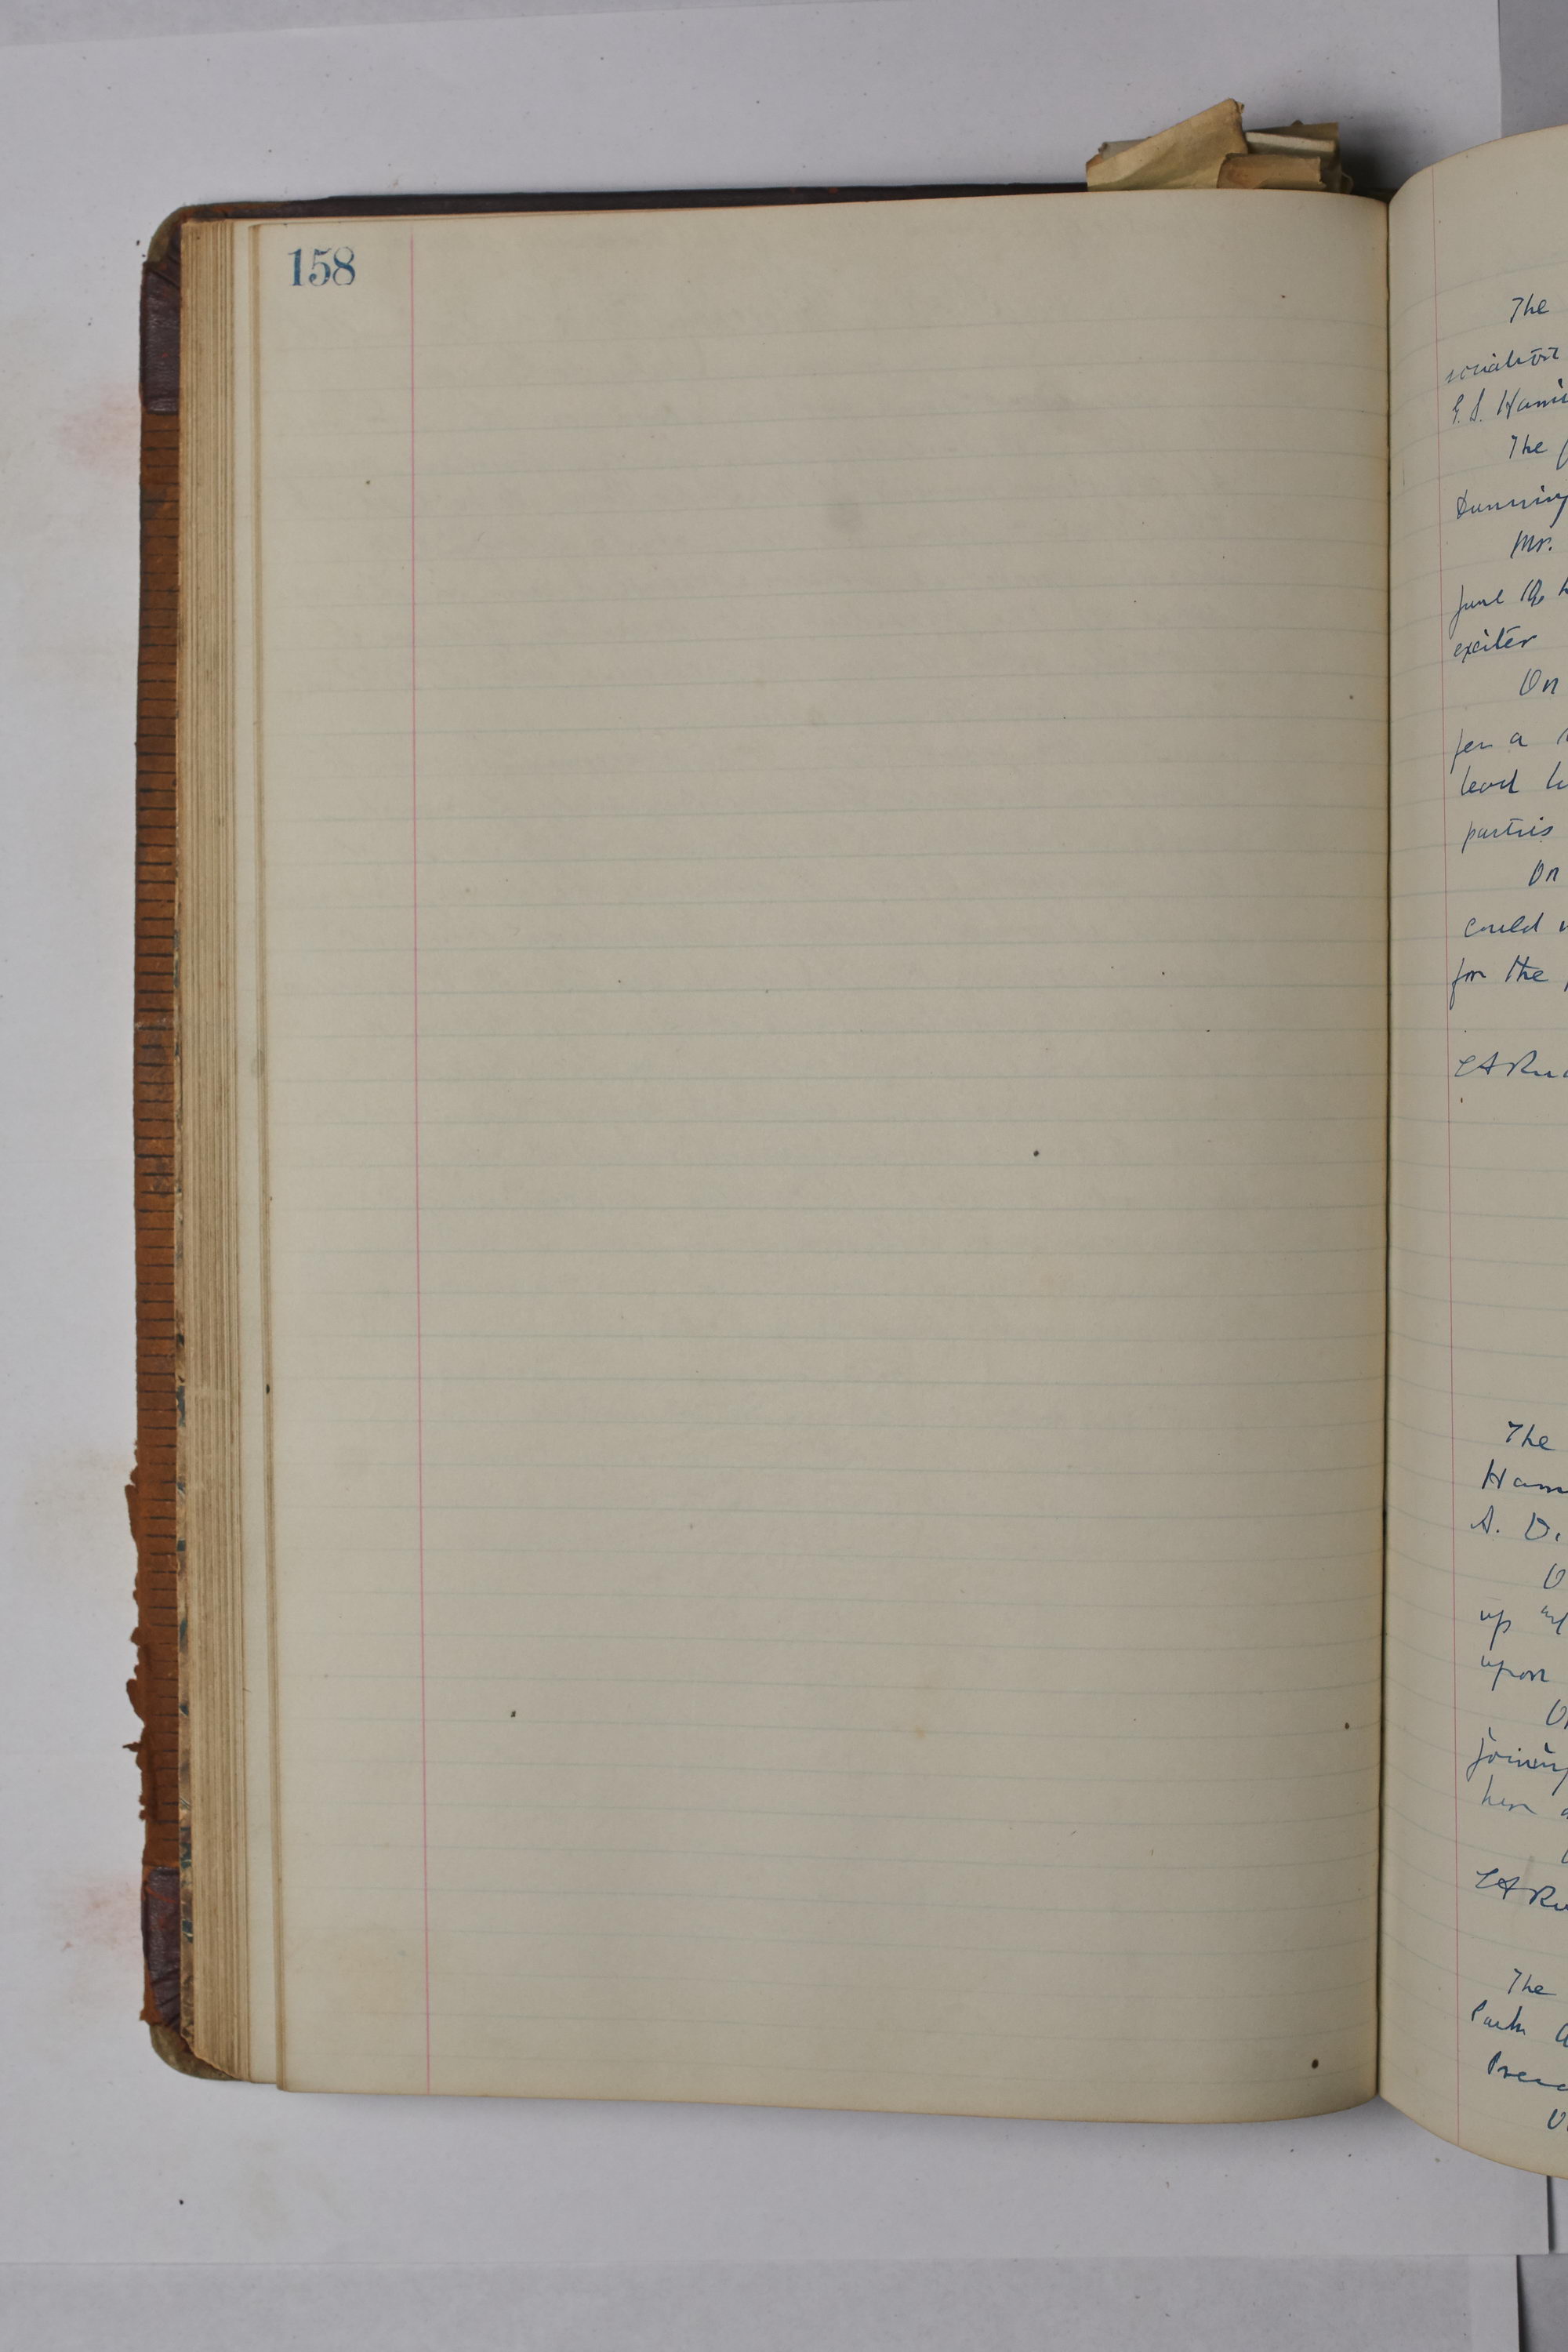 158
The
sociation
E. S. Hami
The
Dunning
Mr.
June 19
exciter
On
for a
lead
parties
On
could
for the
EARu
The
Ham
A. D.
up
upon
joining
her
EARu
The
Park